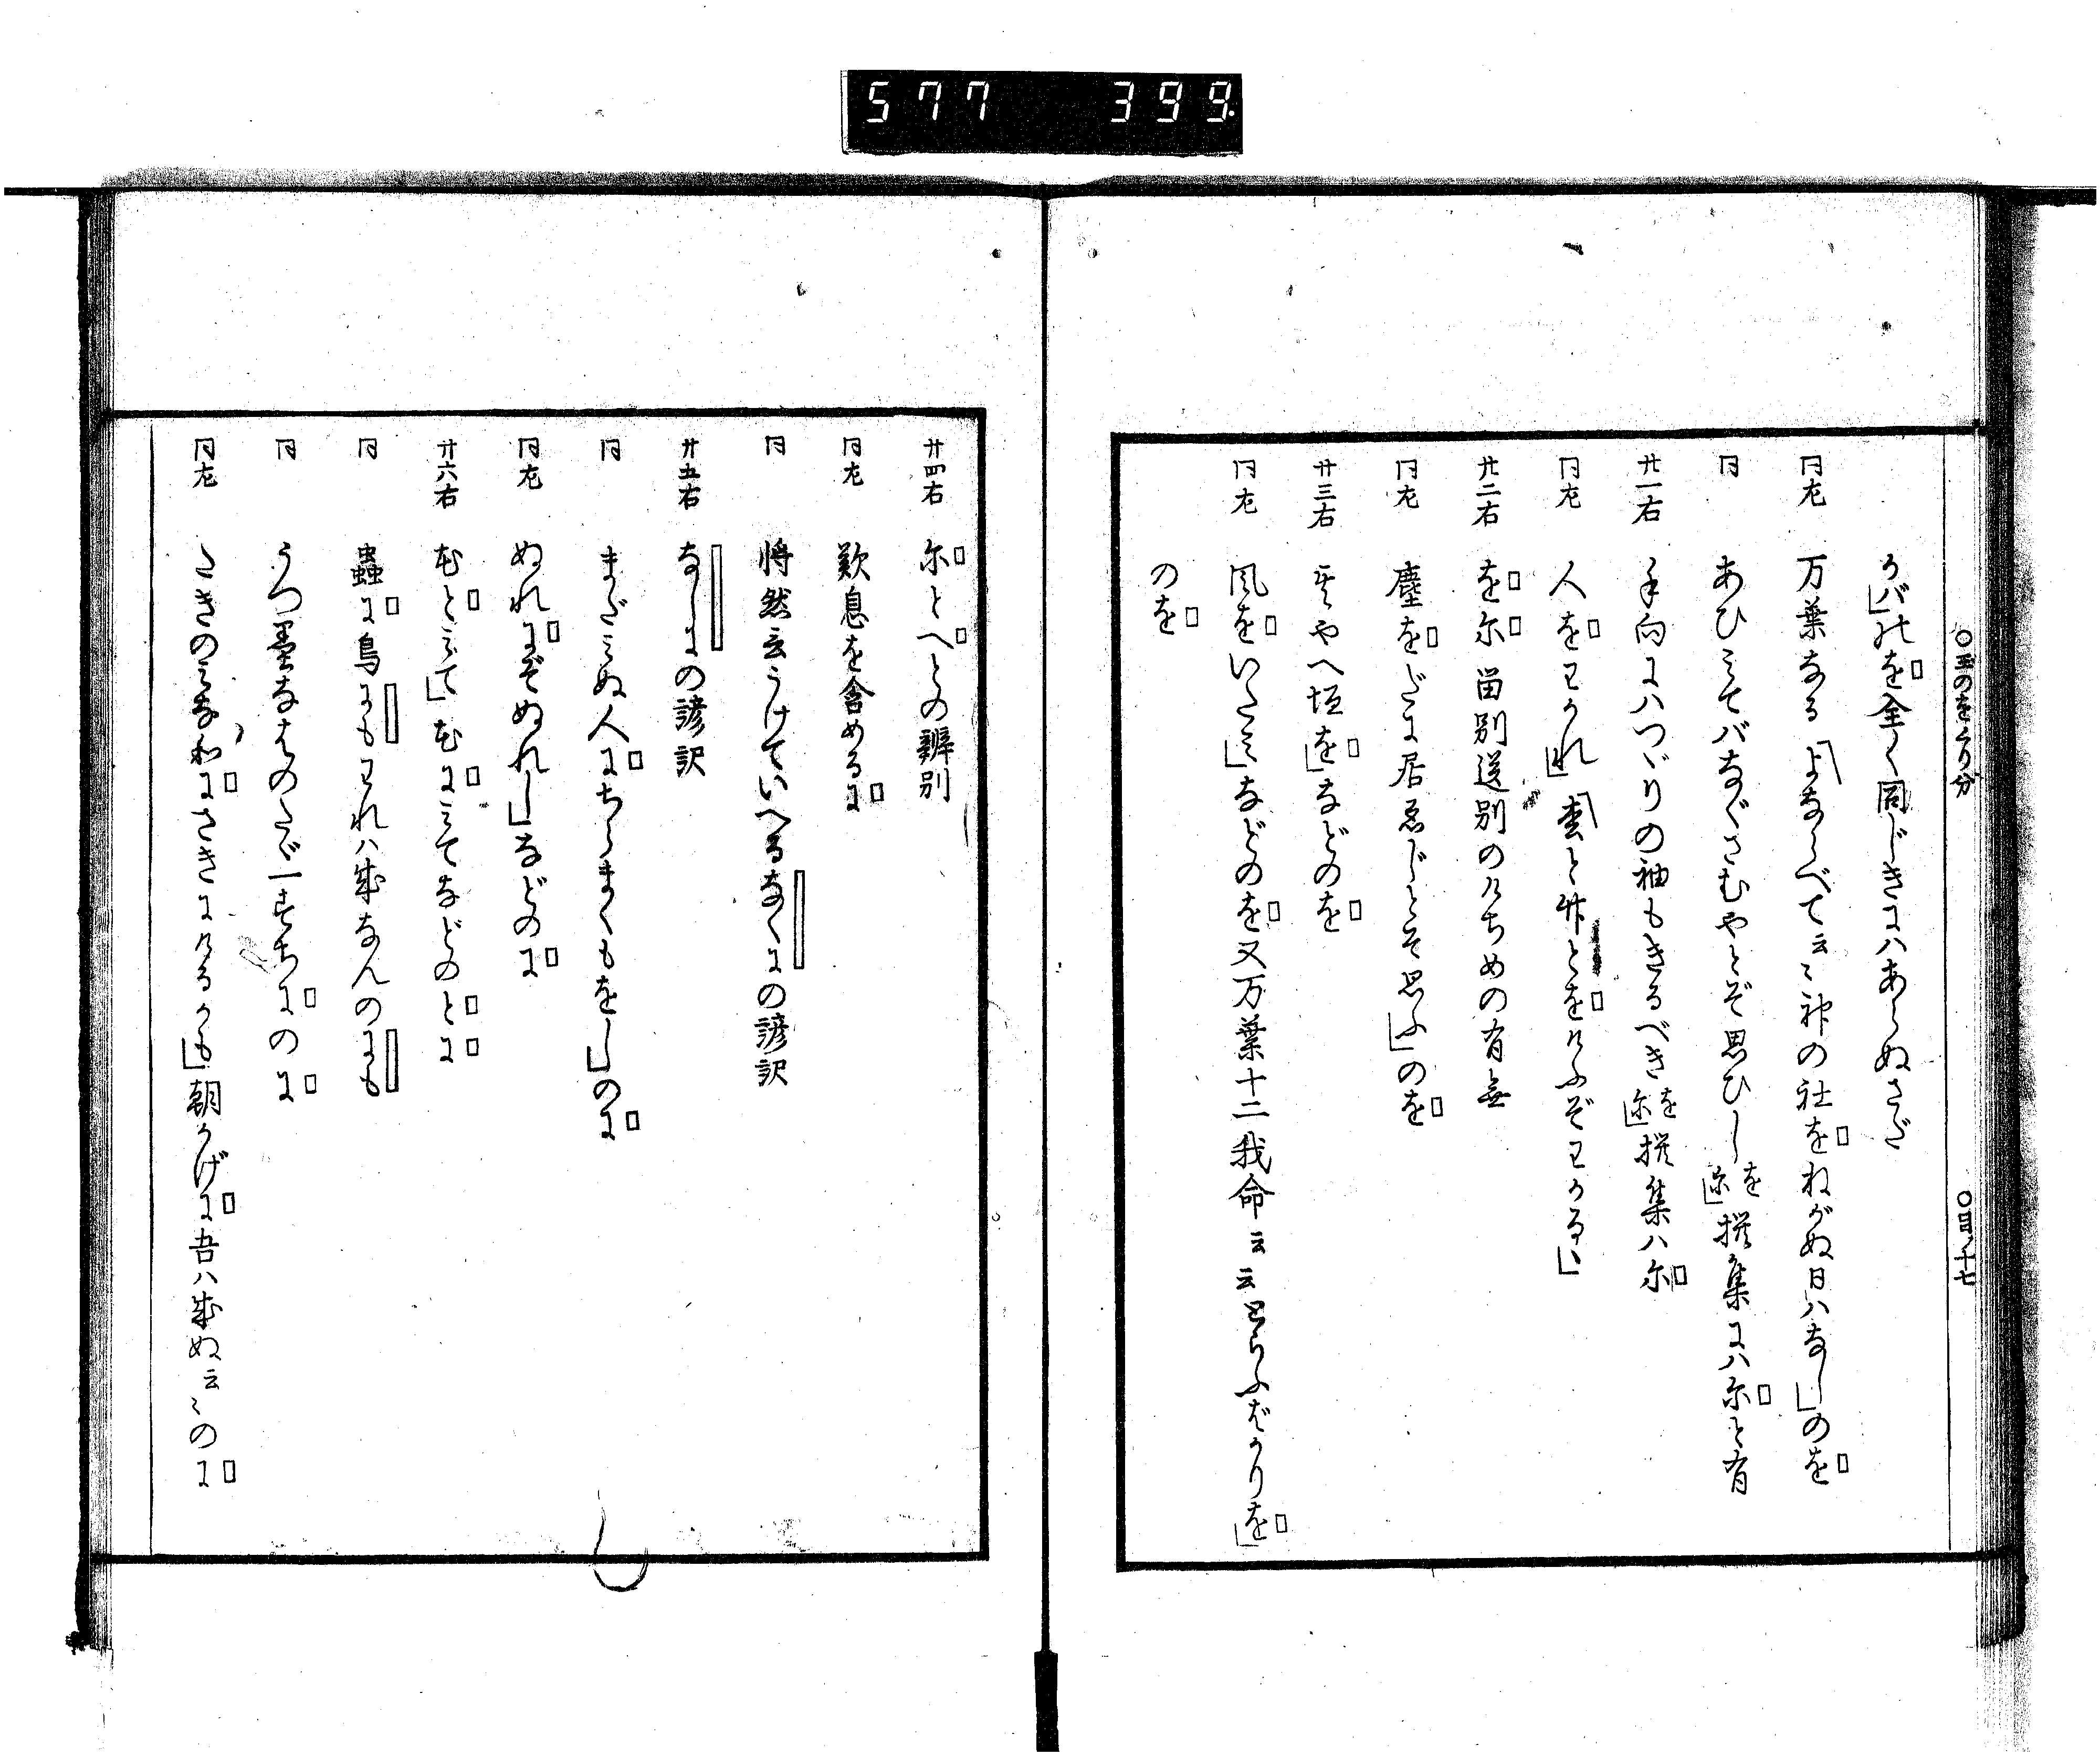 577 399
○玉のをくり分 ○目ノ十七
うバ」此を全く同じきにハあらぬさだ
同左 万葉なる「よならべて云〻神の社をねがぬ日ハなし」のを
同 あひミてバなぐさむやとぞ思ひしを尓」撰集にハ尓と有
廿一右 手向にハつゞりの袖もきるべきを尓」撰集ハ尓
同左 人をわかれ」雲と 々とをけふぞわかるゝ」
廿二右 を尓 留別送別のけぢめの有無
同左 塵をだに居ゑじとぞ思ふ」のを
廿三右 やへ垣を」などのを
同左 風をいたミ」などのを又万葉十二我命云云とらふばかりを」
のを
廿四右 尓とへとの辨別
同左 歎息を含めるに
同 将然言うけていへるなくにの諺訳
廿五右 なしにの諺訳
同 まだミぬ人にちらまくもをし」のに
同左 ぬれにぞぬれし」などのに
廿六右 むとミて」むにミてなどのとに
同 蟲に鳥にもわれハ成なんのにも
同 うつ墨なはのたゞ一すぢにのに
同左 さきのミな和にさきにけるかも」朝かげに吾ハ成ぬ云〻のに